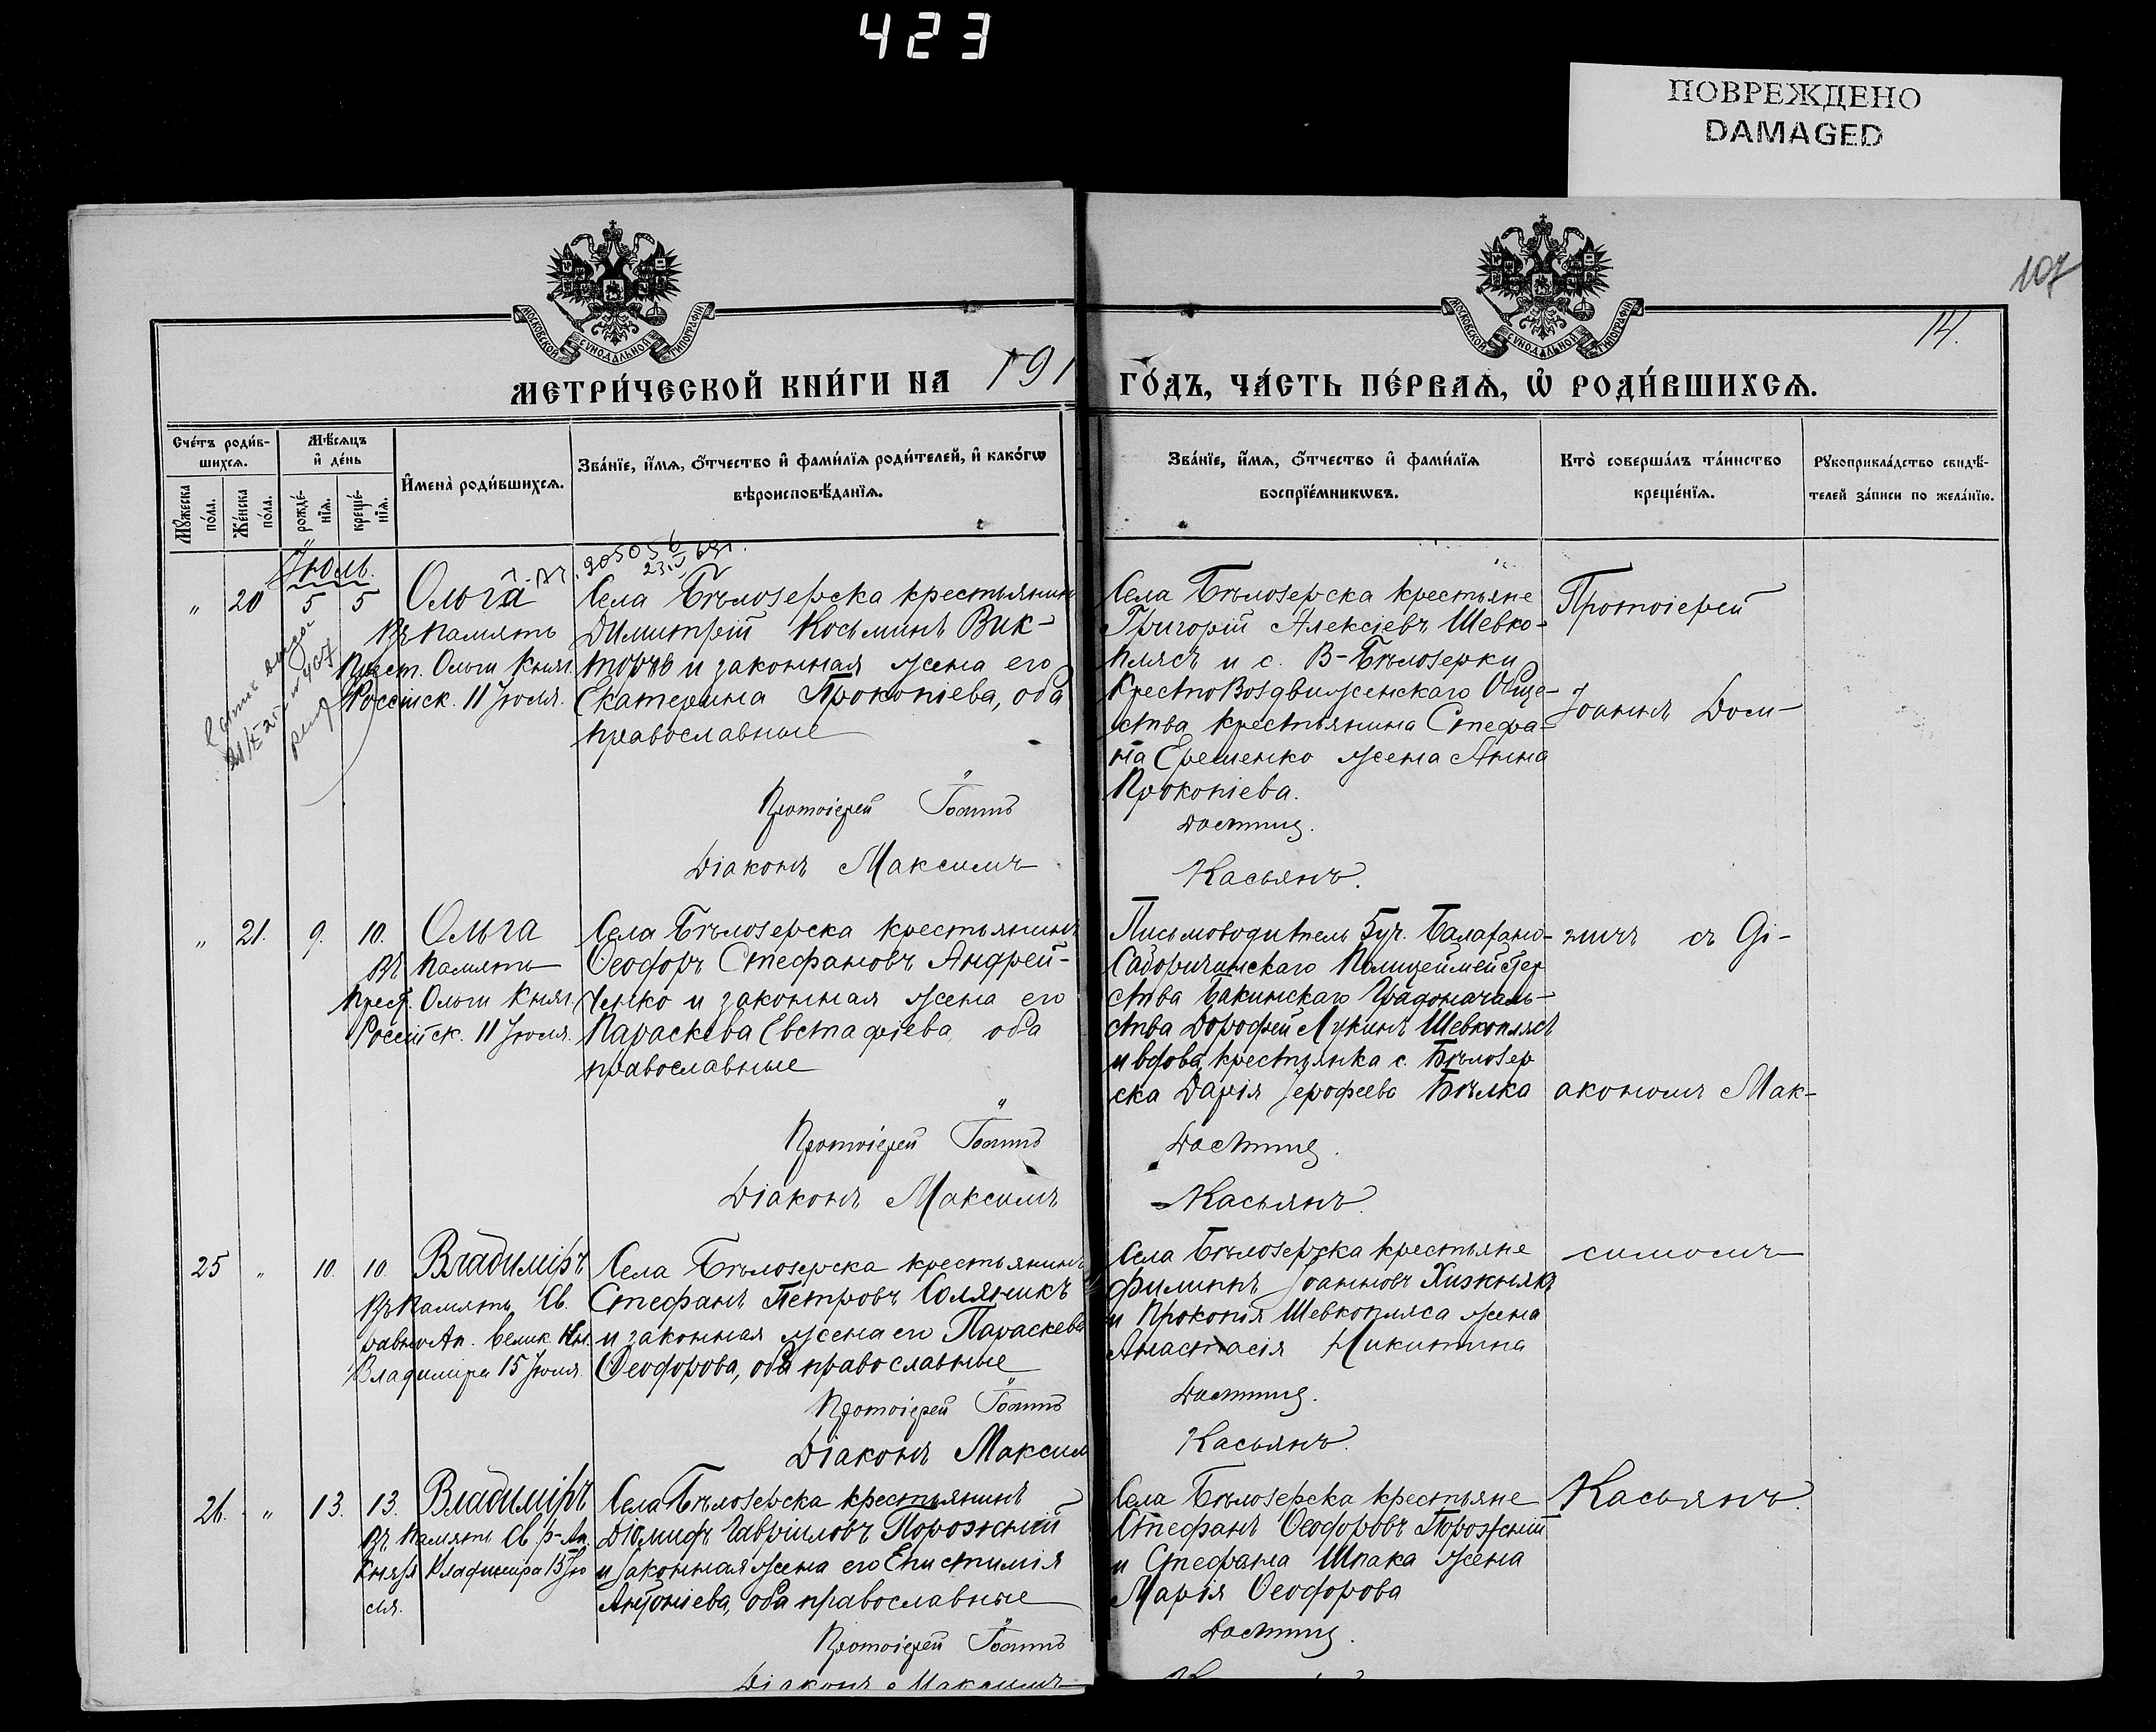 423
ПОВРЕЖДЕНО
DAMAGED
107
14.
МОСКОВСКОЙ СѴНОДАЛЬНОЙ ТИПОГРАФІИ
МОСКОВСКОЙ СѴНОДАЛЬНОЙ ТИПОГРАФІИ
МЕТРИ́ЧЕСКОЙ КНИ́ГИ НА 191
ГО́ДЪ, ЧА́СТЬ ПЕ́РВАѦ, Ѡ҆ РОДИ́ВШИХСѦ.
Сче́тъ роди́в-
шихсѧ.
Мꙋ́жеска
по́ла.
Же́нска
по́ла.
Мѣ́сѧцъ
и҆ де́нь
рожде́-
нїѧ.
креще́-
нїѧ.
И҆мена̀ роди́вшихсѧ.
Зва́нїе, и҆́мѧ, ѻ҆́тчество и҆ фами́лїѧ роди́телей, и҆ како́гѡ
вѣроисповѣ́данїѧ.
Зва́нїе, и҆́мѧ, ѻ҆́тчество и҆ фами́лїѧ
воспрїе́мникѡвъ.
Кто̀ соверша́лъ та́инство
креще́нїѧ.
Рꙋкоприкла́дство свидѣ́-
телей за́писи по жела́нїю.
Іюль.
23.IV
" 20 5 5 Ольга
Въ память
Ольги Княг.
Россійск. 11 Іюля.
Села Бѣлозерска крестьянинъ
Димитрій Косьминъ Вик-
торъ и законная жена его
Екатерина Прокопіева, оба
православные
Протоіерей Іоаннъ
Діаконъ Максимъ
Села Бѣлозерска крестьяне
Григорій Алексіевъ Шевко-
плясъ и с. В-Бѣлозерки
Крестовоздвиженскаго Обще-
ства крестьянина Стефа-
на Ерешенко жена Анна
Прокопіева.
Касьянъ.
Протоіерей
Іоаннъ
" 21. 9. 10. Ольга
Въ память
Ольги Княг.
Россійск. 11 Іюля.
Села Бѣлозерска крестьянинъ
Ѳеодоръ Стефановъ Андрей-
ченко и законная жена его
Параскева Евстафіева, оба
православные
Протоіерей Іоаннъ
Діаконъ Максимъ
Письмоводитель 5 уч.
Полицеймейстер
ства Бакинскаго Градоначаль-
ства Дорофей Лукинъ Шевкоплясъ
и вдова крестьянка с. Бѣлозер
ска Дарія Іерофеева Бѣлка
Касьянъ.
съ Ді-
акономъ Мак-
25 " 10. 10. Владиміръ
Въ память Св.
равноАп. Велик. Кн.
Владиміра 15 Іюля.
Села Бѣлозерска крестьянинъ
Стефанъ Петровъ Соляникъ
и законная жена его Параскева
Ѳеодорова, оба православные
Протоіерей Іоаннъ
Діаконъ Максим
Села Бѣлозерска крестьяне
Филиппъ Іоанновъ Хижнякъ
и Прокопія Шевкопляса жена
Анастасія Никитина
Касьянъ.
симомъ
26. " 13. 13. Владиміръ
Въ память Св. р-Ап.
Князя Владиміра 15 Ію
ля.
Села Бѣлозерска крестьянинъ
Діомидъ Гавріиловъ Порожній
и законная жена его Епистимія
Антоніева, оба православные
Протоіерей Іоаннъ
Діаконъ Максимъ
Села Бѣлозерска крестьяне
Стефанъ Ѳеодоровъ Порожній
и Стефана Шпака жена
Марія Ѳеодорова
Касьянъ.